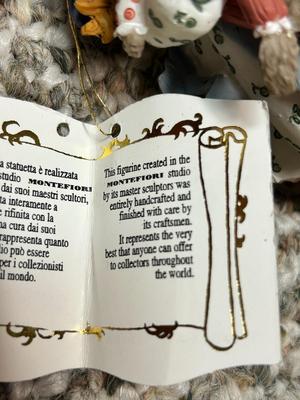 a statuetta è realizzata
studio MONTEFIORI
dai suoi maestri scultori,
ta interamente a
e rifinita con la
na cura dai suoi
rappresenta quanto
lio può essere
per i collezionisti
il mondo.
This figurine created in the
MONTEFIORI studio
by its master sculptors was
entirely handcrafted and
finished with care by
its craftsmen.
It represents the very
best that anyone can offer
to collectors throughout
the world.